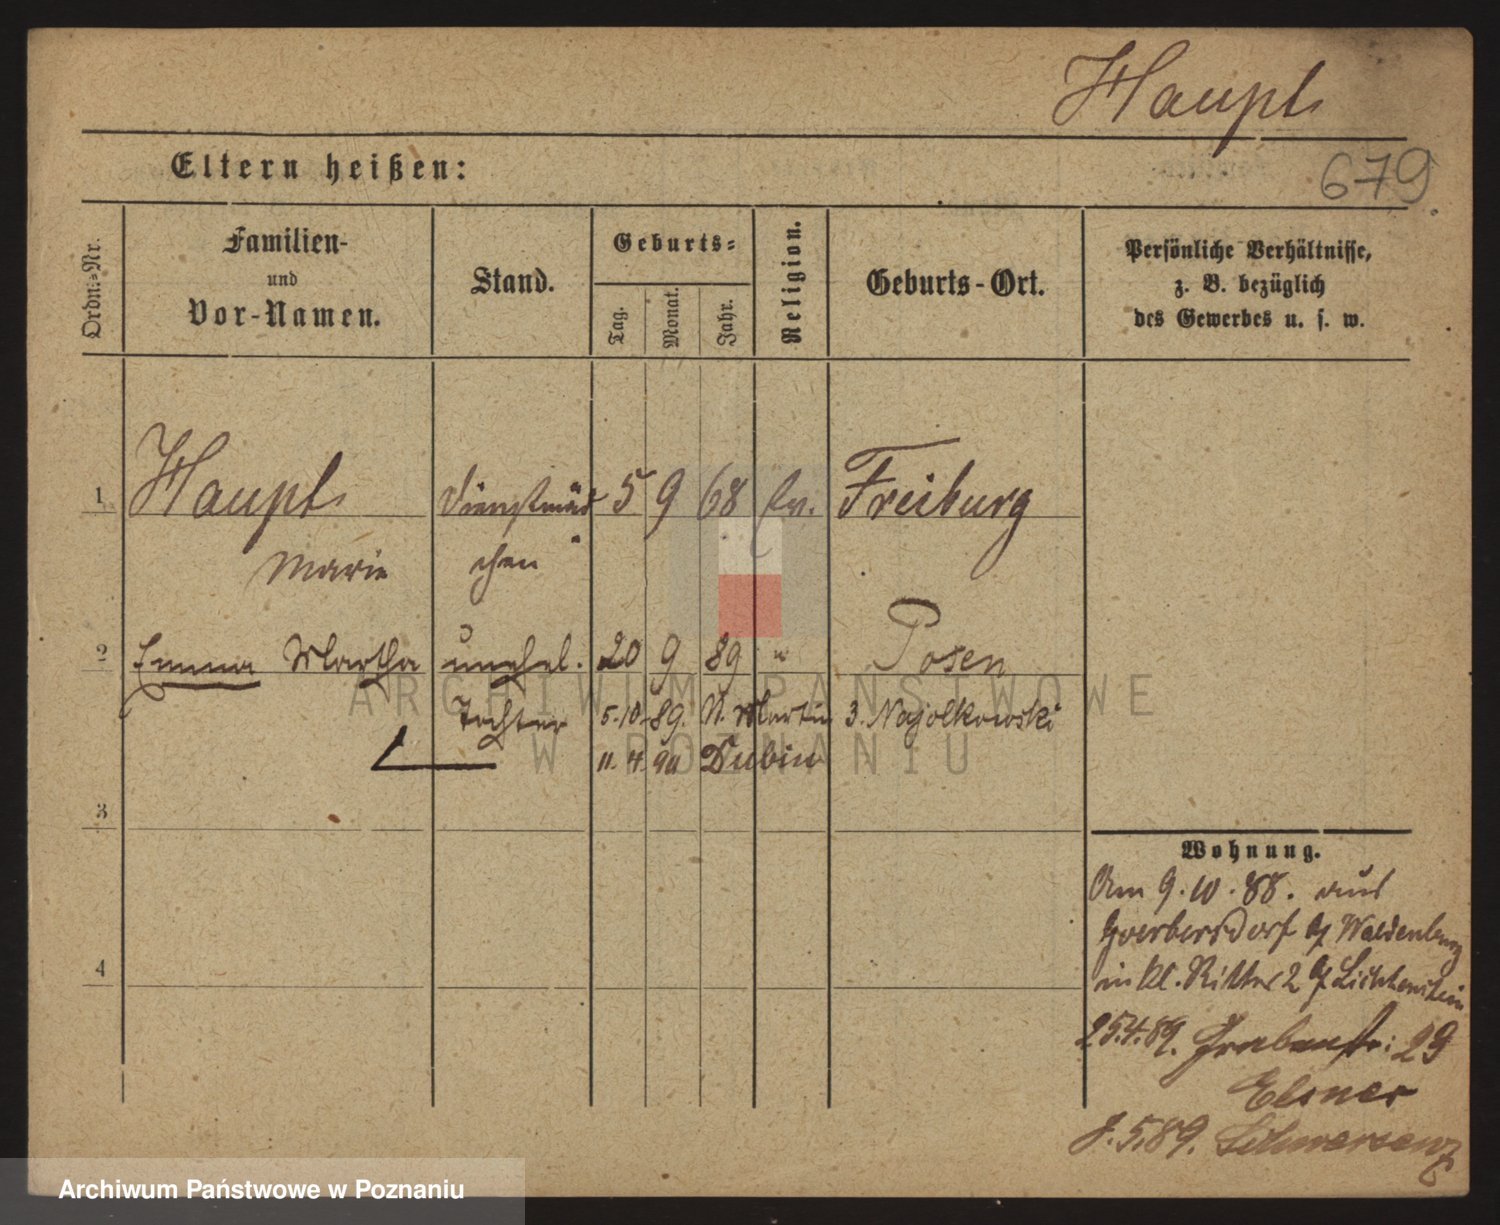 Haupt
Eltern heißen:
679
Ordn.=Nr.
Familien-
und
Vor-Namen.
Stand.
Geburts=
Tag.
Monat.
Jahr.
Religion.
Geburts-Ort.
Persönliche Verhältnisse,
z. B. bezüglich
des Gewerbes u. s. w.
1 Haupt Dienstmäd 5 9 68 Ev. Freiburg
Marie chen
2 Emma Martha unehel. 20 9 89 " Posen
Tochter 5.10.89. St. Martin 3. Najolkowski
11. 4. 90 Dubin
3
Wohnung.
Am 9.10.88. aus
Goerbersdorf b/ Waldenburg
4
in kl. Ritter 2 b/ Lichtenstein
25.4.89. Grabenstr: 29
Elsner
J. 5.89. Schwersenz
ARCHIWUM PAŃSTWOWE
W POZNANIU
Archiwum Państwowe w Poznaniu